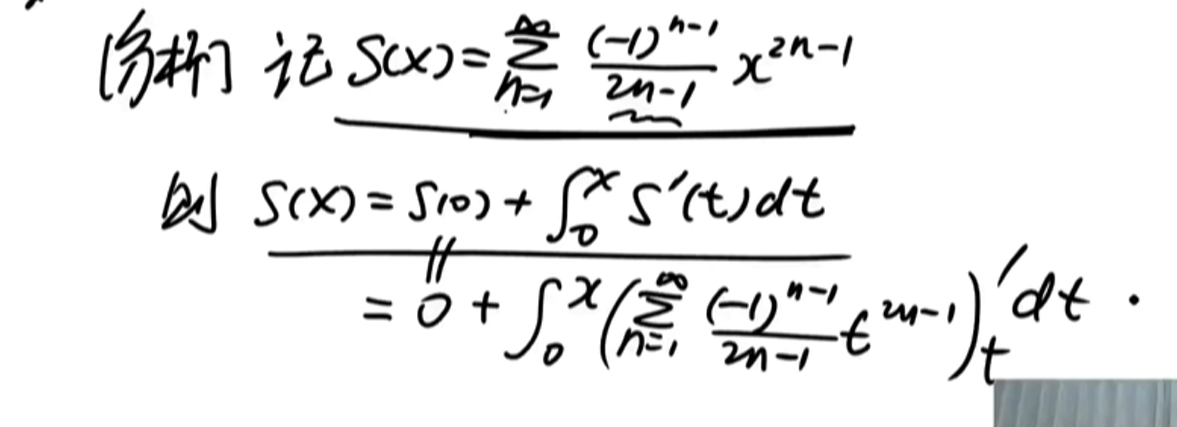 [分析] 记 S(x)=∑_{n=1}^{∞} \frac{(-1)^{n-1}}{2n-1} x^{2n-1}
则 S(x)=S(0)+∫_0^x S'(t)dt
= 0 + ∫_0^x (∑_{n=1}^{∞} \frac{(-1)^{n-1}}{2n-1} t^{2n-1})'_t dt .